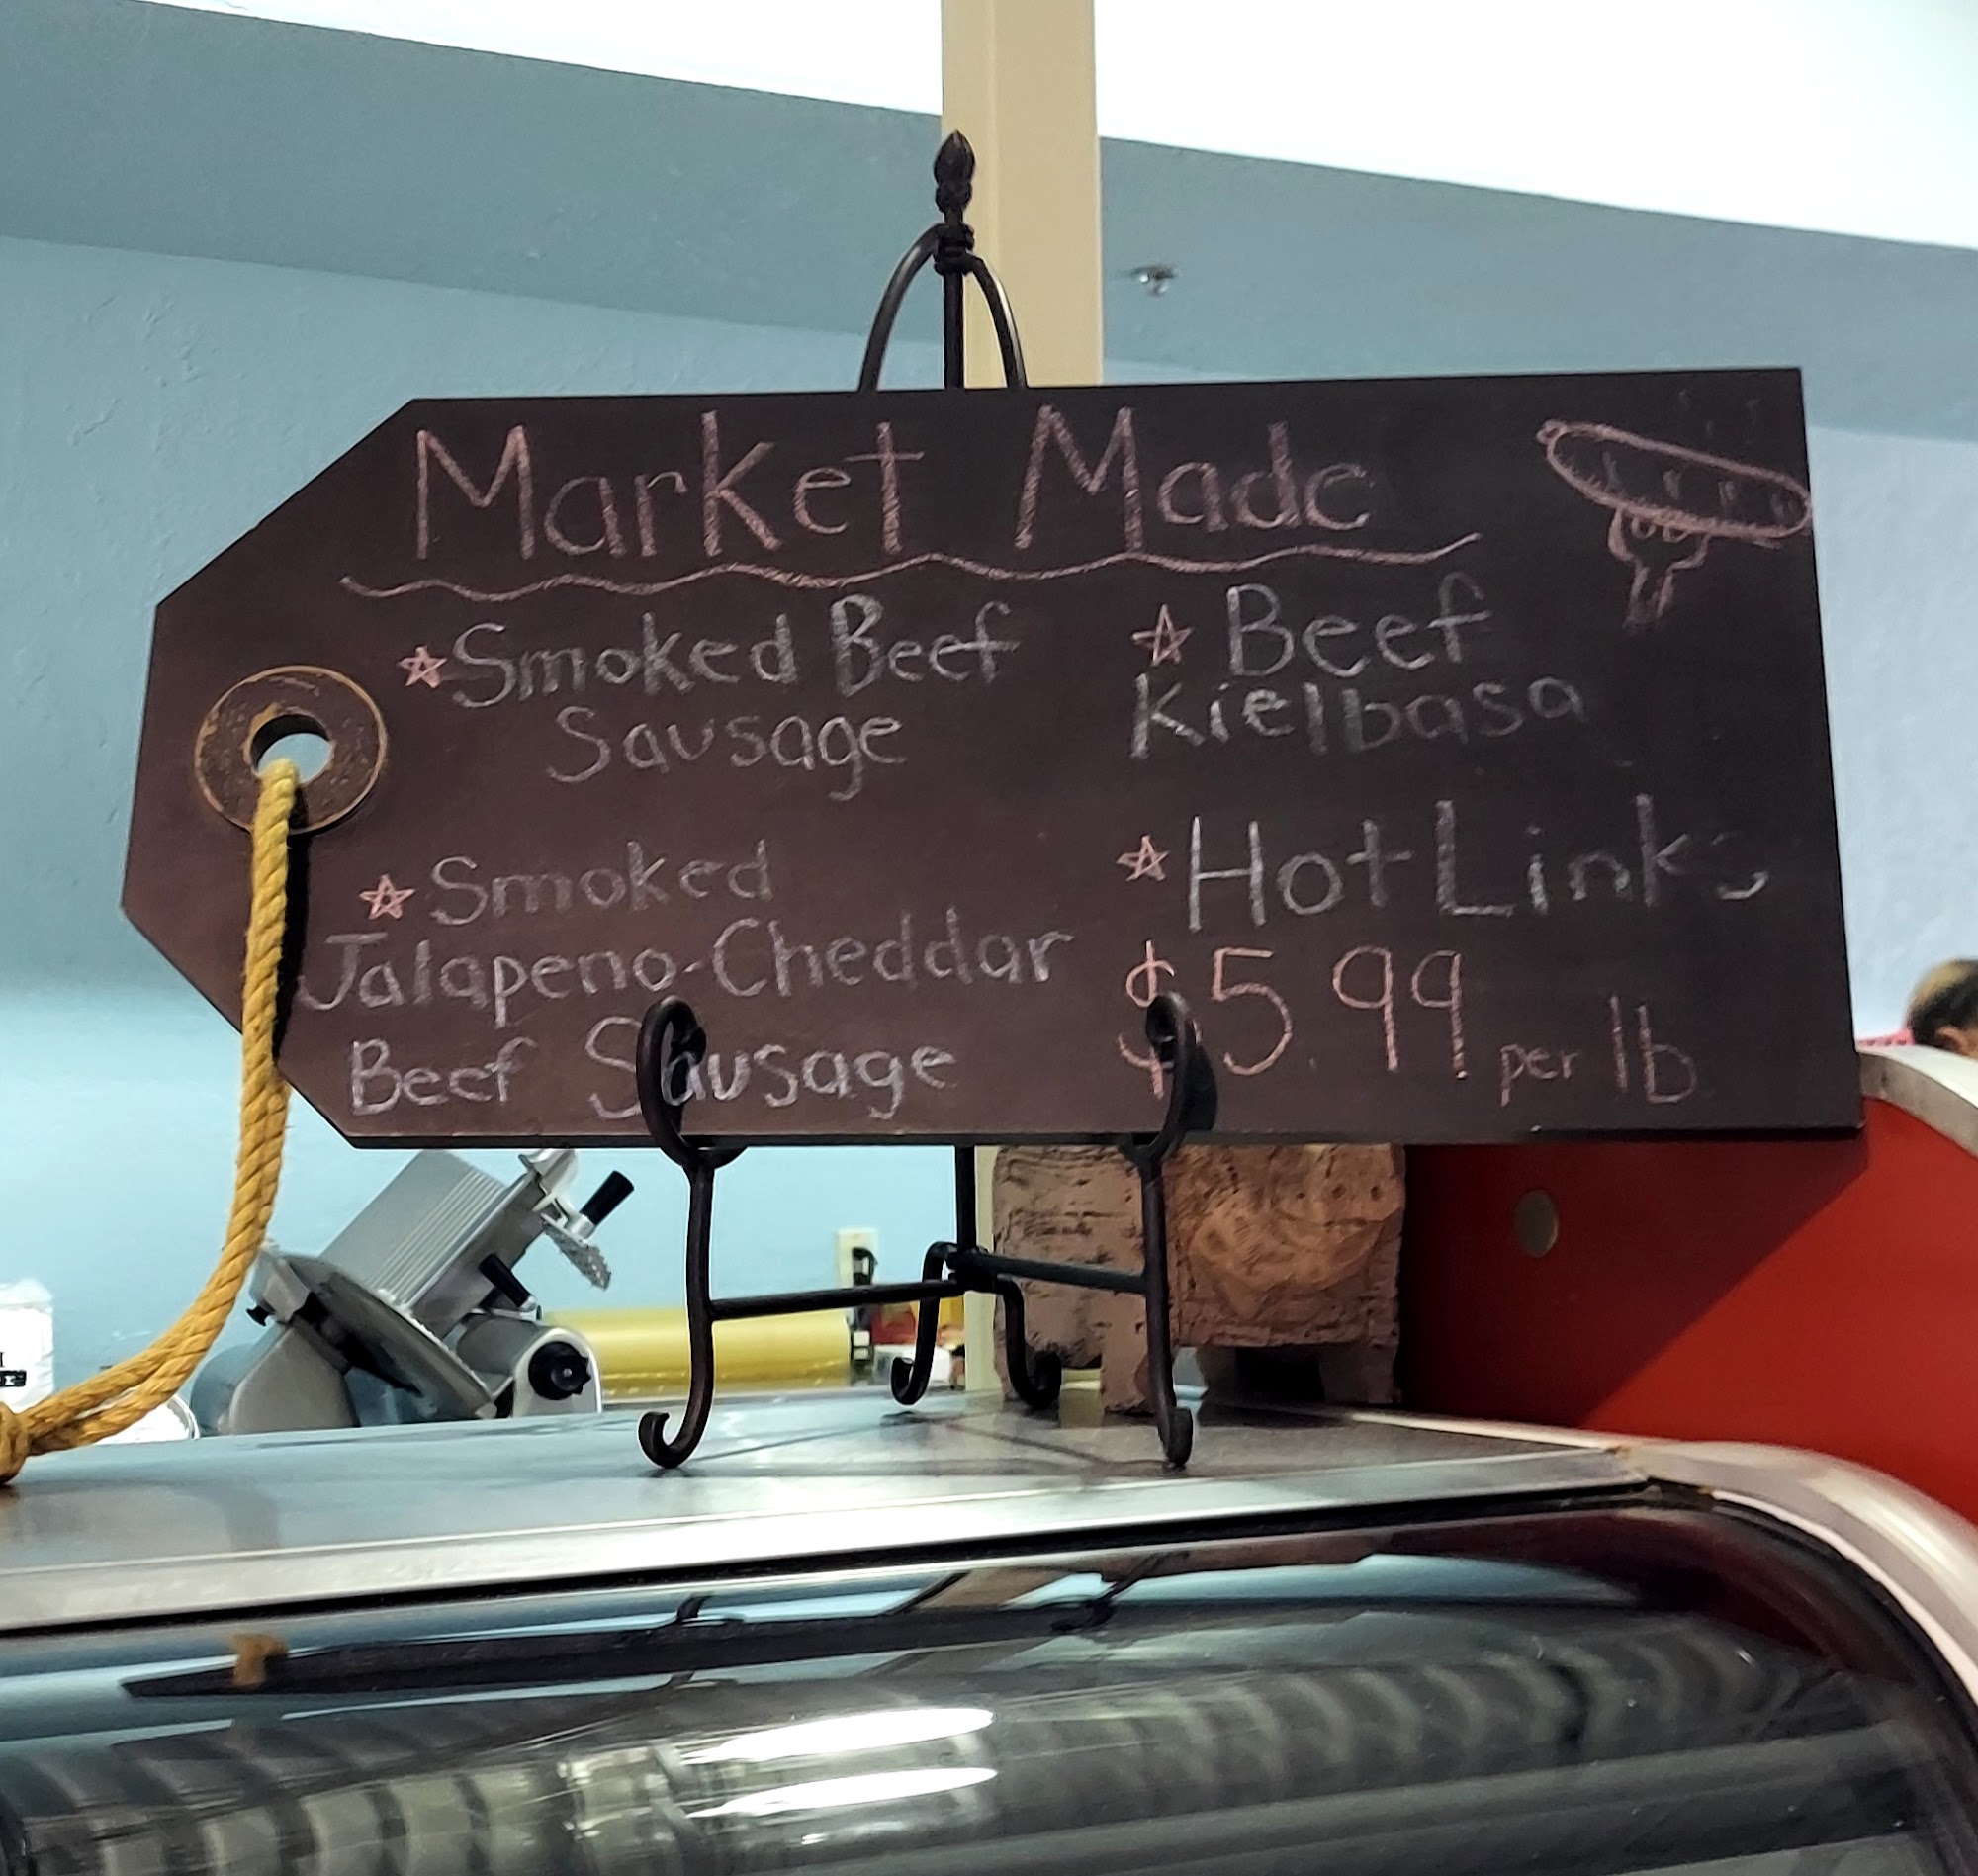 Market Made
Smoked Beef
Sausage
Smoked
Jalapeno-Cheddar
Beef Sausage
Beef
Kielbasa
Hot Links
$5.99 per lb